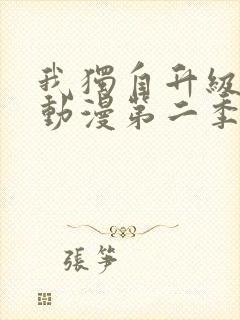 我獨自升級
動漫第二季
張笋